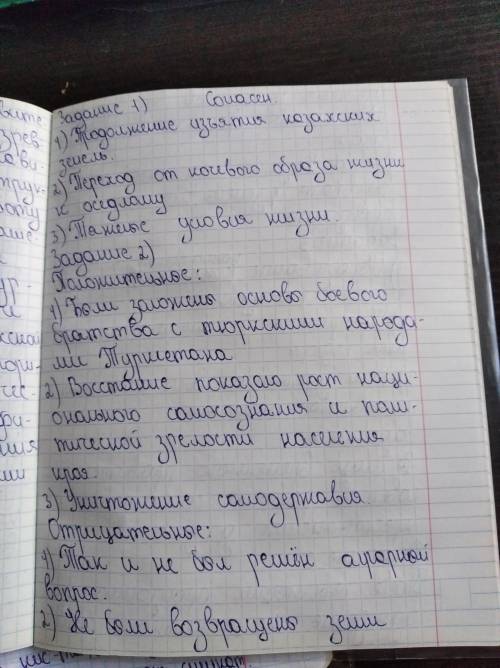 Задание 1) Согласен.
1) Продолжение изъятия казахских
земель.
2) Переход от кочевого образа жизни
к оседлому
3) Тяжёлые условия жизни.
Задание 2)
Положительное:
1) Были заложены основы боевого
братства с тюркскими народа-
ми Туркестана
2) Восстание показало рост наци-
онального самосознания и поли-
тической зрелости населения
края.
3) Уничтожение самодержавия.
Отрицательные:
1) Так и не был решён аграрный
вопрос.
2) Не были возвращены земли